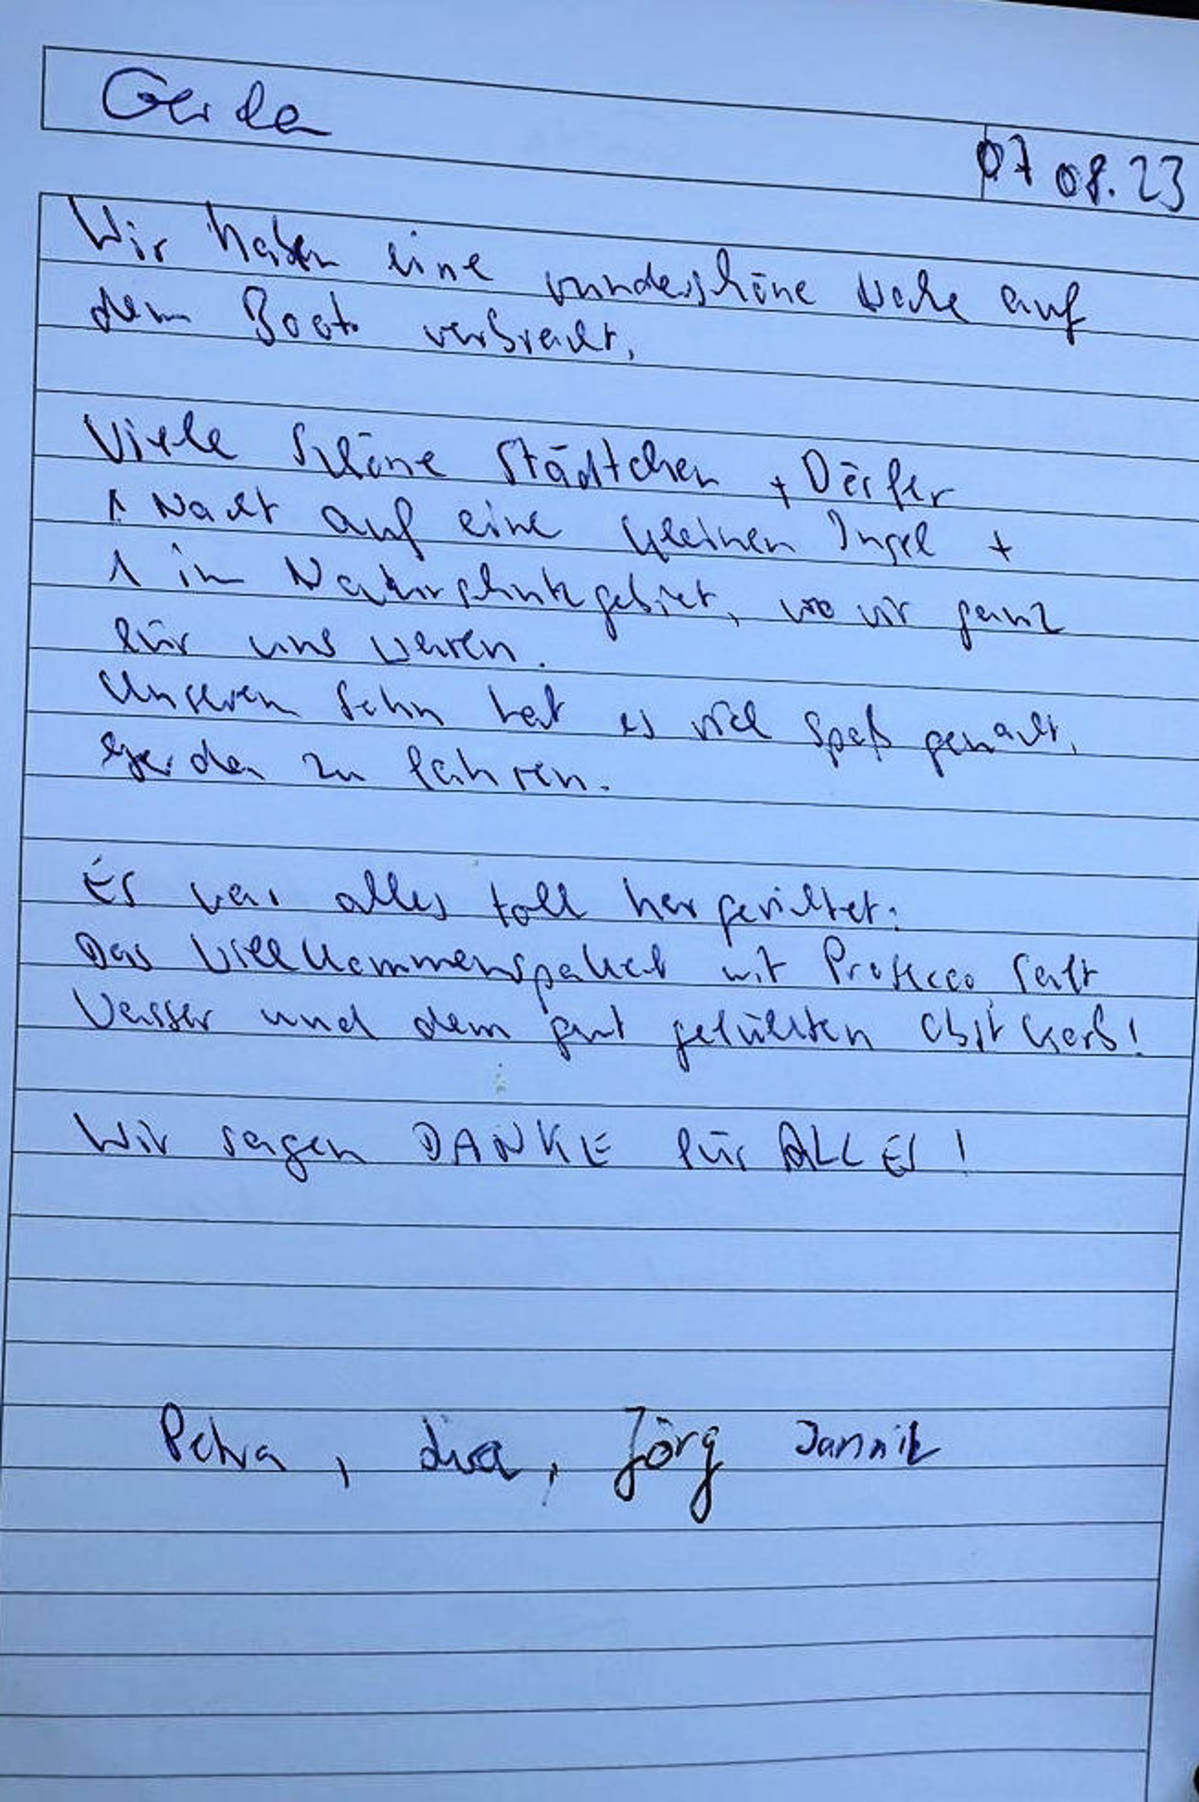 Gerda
07 08.23
Wir haben eine wunderschöne Woche auf
dem Boot verbracht.
Viele schöne Städtchen + Dörfer
1 Nacht auf eine kleinen Insel +
1 im Naturschutzgebiet, wo wir ganz
für uns waren.
Unserem Sohn hat es viel Spaß gemacht,
Gerda zu fahren.
Es war alles toll hergerichtet.
Das Willkommenspaket mit Prosecco Saft
Wasser und dem gut gefüllten Obstkorb!
Wir sagen DANKE für ALLES!
Petra, Jörg Jannik